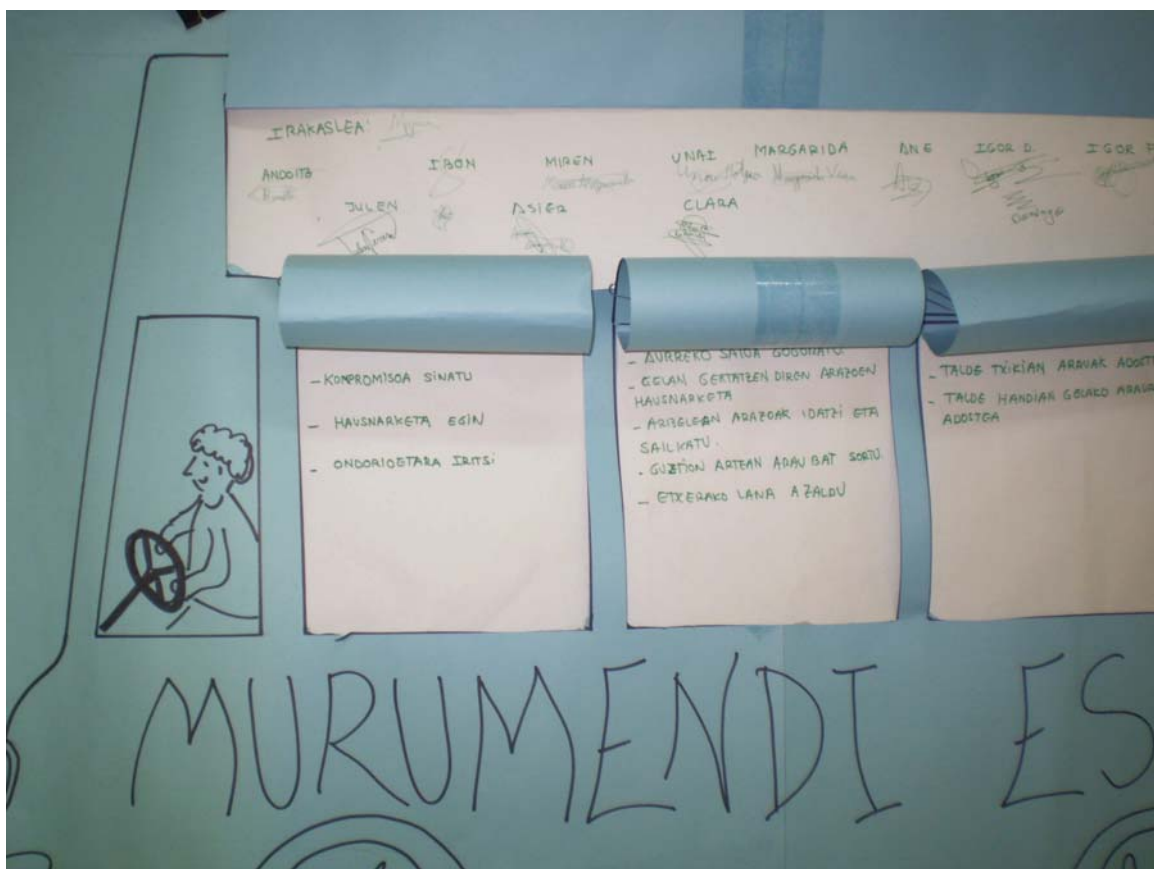 IRAKASLEA:
ANDOITZ IBON MIREN UNAI MARGARIDA ANE IGOR D. IGOR F
Margarida
JULEN ASIER CLARA
Domingo
- KONPROMISOA SINATU
- HAUSNARKETA EGIN
- ONDORIOETARA IRITSI
- AURREKO SAIOA GOGORATU.
- GELAN GERTATZEN DIREN ARAZOEN
HAUSNARKETA
- ARBELEAN ARAZOAK IDATZI ETA
SAILKATU.
- GUZTION ARTEAN ARAU BAT SORTU.
- ETXERAKO LANA AZALDU
- TALDE TXIKIAN ARAUAK ADOST
- TALDE HANDIAN GELAKO ARAU
ADOSTEA
MURUMENDI ES